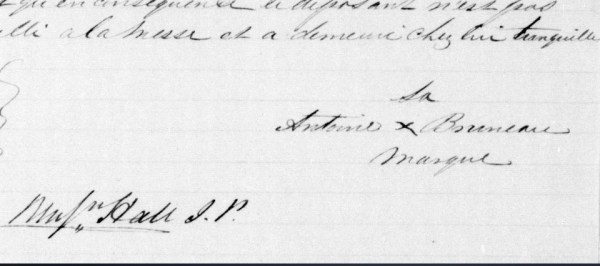 qu'en conséquence le déposant n'est pas
allé a la messe et a demeuré chez lui tranquille
Sa
Antoine x Bruneau
marque
Benjn Hall J. P.